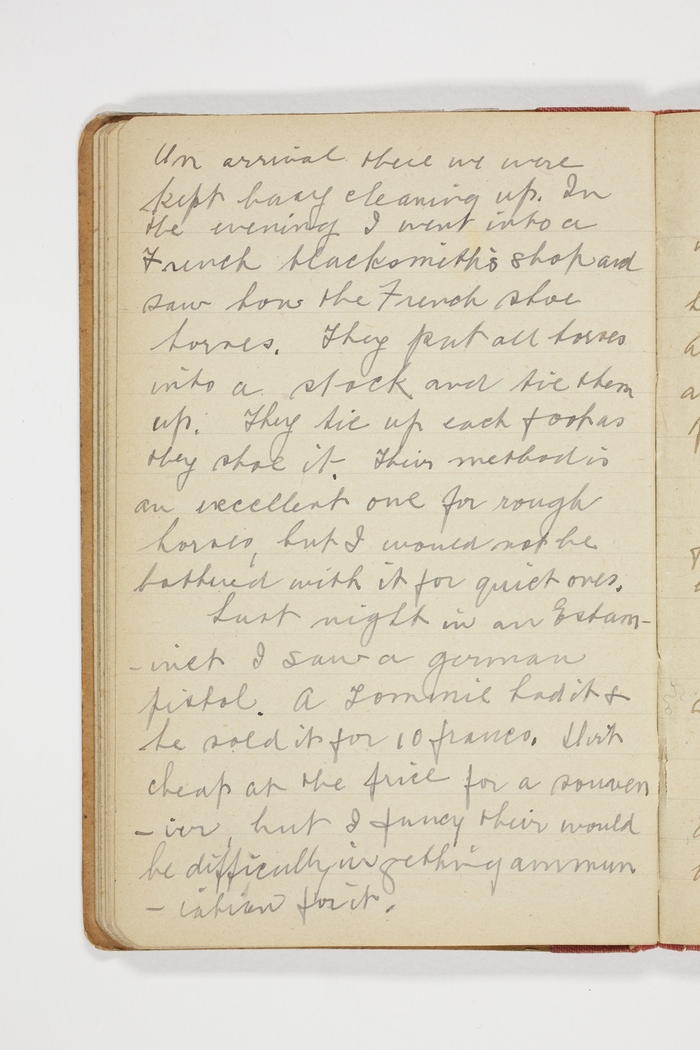 On arrival there we were
kept busy cleaning up. In
the evening I went into a
French blacksmith's shop and
saw how the French shoe
horses. They put all horses
into a stock and tie them
up. They tie up each foot as
they shoe it. Their method is
an excellent one for rough
horses, but I would not be
bothered with it for quiet ones.
Last night in an Estam-
-inet I saw a german
pistol. A Tommie had it &
he sold it for 10 francs.
cheap at the price for a souven
-ier, but I fancy their would
be difficulty in getting ammun
-iation for it.